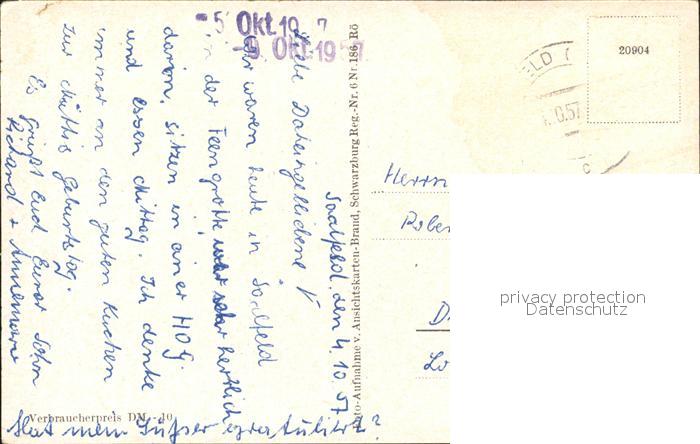 -5. Okt. 19 7
-9. Okt. 1957
Saalfeld, den 4.10.57
Liebe Daheimgebliebene!
Wir waren heute in Saalfeld
in der Feengrotte, war sehr herrlich
darin, sitzen in einer HOG.
und essen Mittag. Ich denke
immer an den guten Kuchen
zu Muttis Geburtstag.
Es grüßt Euch Euer Sohn
Richard + Annemarie
Hat mein Süßer gratuliert?
Verbraucherpreis DM -.10
Foto-Aufnahme v. Ansichtskarten-Brand, Schwarzburg Reg.-Nr. 6 Nr. 186 Rö
20904
ELD (
.0.57
Herrn
Rober
D
Lo
privacy protection
Datenschutz